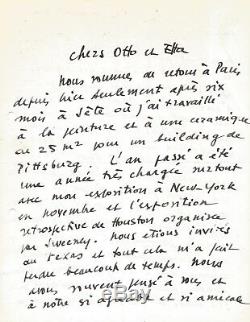 chers Otto et Etta
Nous sommes de retour à Paris
depuis hier seulement après six
mois à Sète où j'ai travaillé
à la peinture et à une ceramique
de 25 m² pour un building de
Pittsburg. L'an passé a été
une année très chargée surtout
avec mon exposition à New-York
en novembre et l'exposition
retrospective de Houston organisée
par Sweeney. Nous etions invités
au Texas et tout cela m'a fait
perdre beaucoup de temps. Nous
avons souvent pensé à vous et
à notre si agréable et si amicale